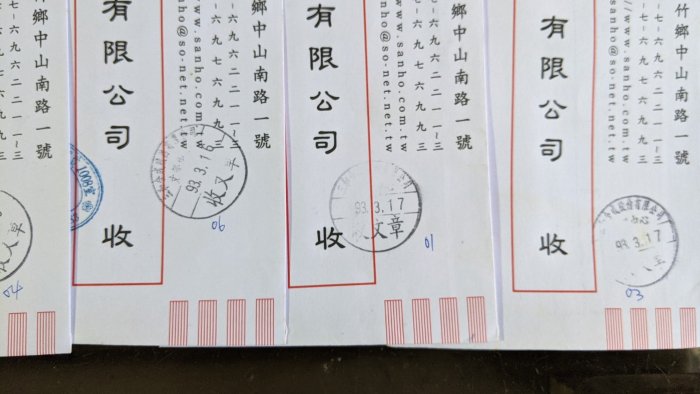 竹鄉中山南路一號
七-六九六二二一一~三
七-六九七六九九三
//www.sanho.com.tw
@so-net.net.tw
有限公司 收
93.3.17
03
鄉中山南路一號
六九六二二一一~三
六九七六九九三
www.sanho.com.tw
sanho@so-net.net.tw
有限公司 收
93.3.17
收文章
01
鄉中山南路一號
六九六二二一一~三
六九七六九九三
www.sanho.com.tw
sanho@so-net.net.tw
有限公司 收
93.3.16
收文章
06
一號
一~三
九三
04